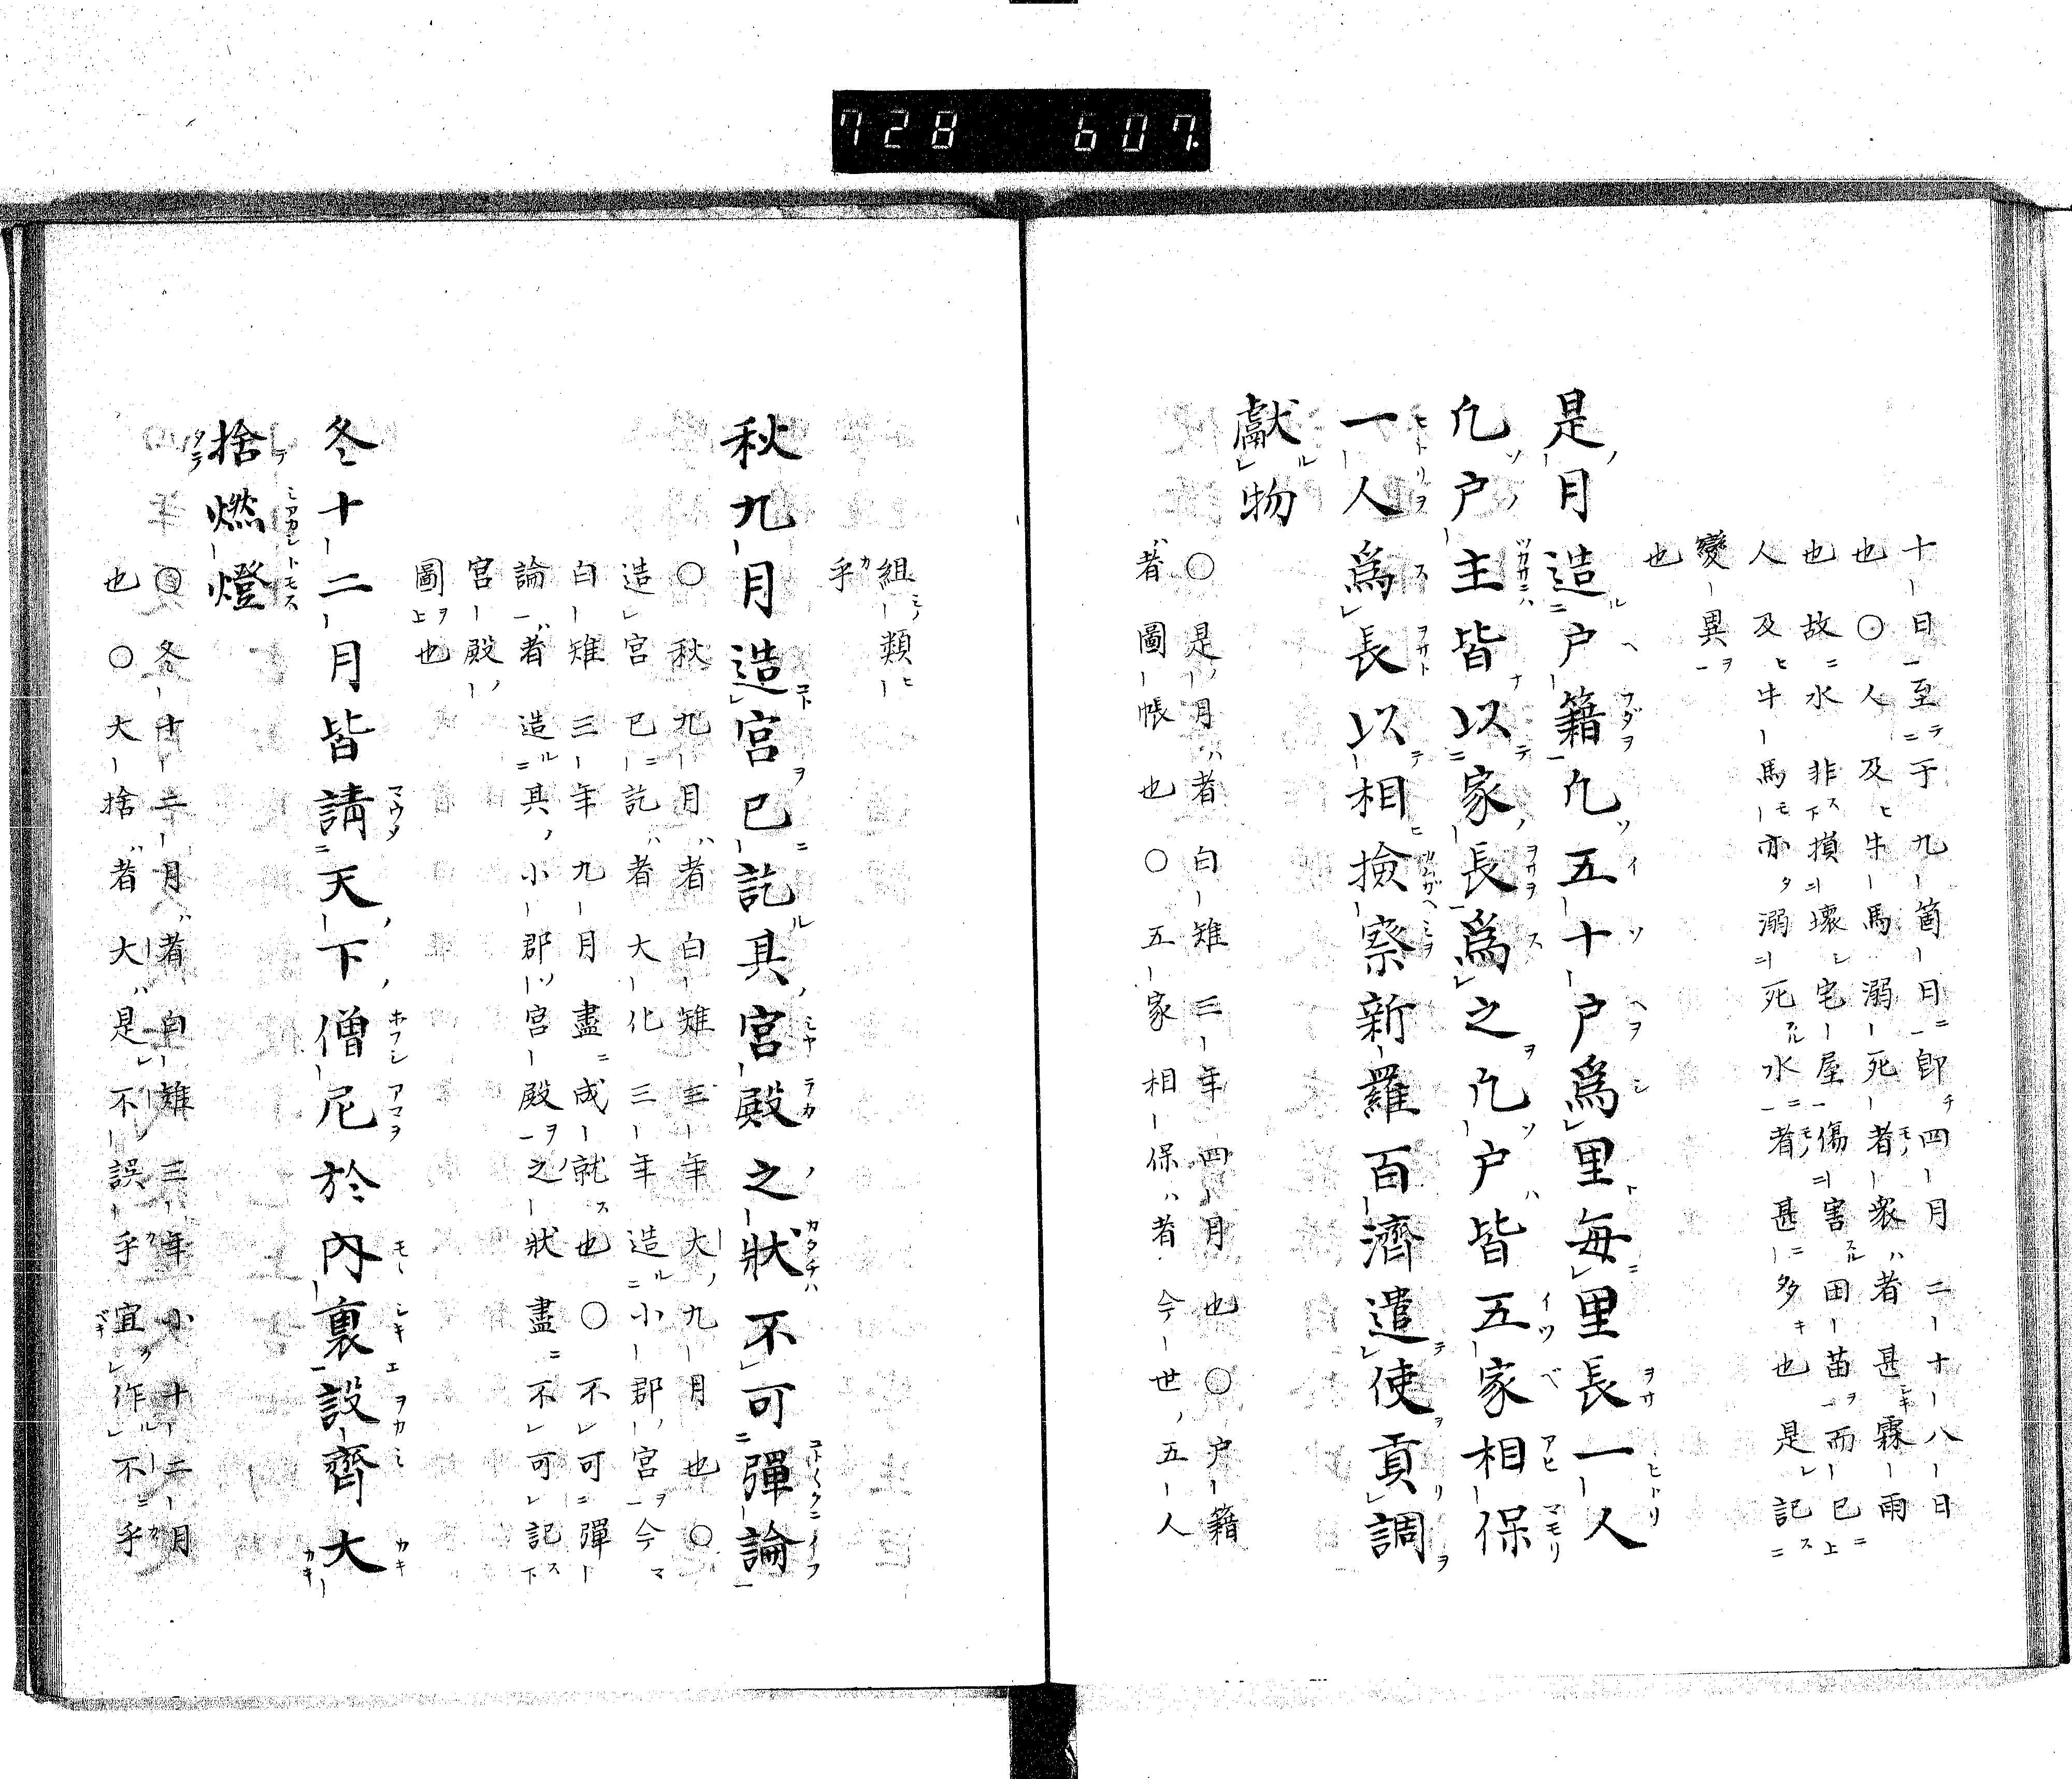 728 607.
十日至于九箇日卽四月二十八日
也〇人及牛馬溺死者衆者甚霖雨
也故水非損壞宅屋傷害田苗而已
人及牛馬亦溺死水者甚多也是記
變異
也
是月造戸籍凢五十戸爲里每里長一人
凢戸主皆以家長爲之凢戸皆五家相保
一人爲長以相撿察新羅百濟遣使貢調
獻物
〇是月者白雉三年四月也〇戸籍
者圖帳也〇五家相保者今世五人
組類
乎
秋九月造宮已訖其宮殿之狀不可彈論
〇秋九月者白雉三年大九月也〇
造宮已訖者大化三年造小郡宮今
白雉三年九月盡成就也〇不可彈
論者造其小郡宮殿之狀盡不可記
宮殿
圖也
冬十二月皆請天下僧尼於內裏設齊大
捨燃燈
〇冬十二月者白雉三年小十二月
也〇大捨者大是不誤乎宜作不乎